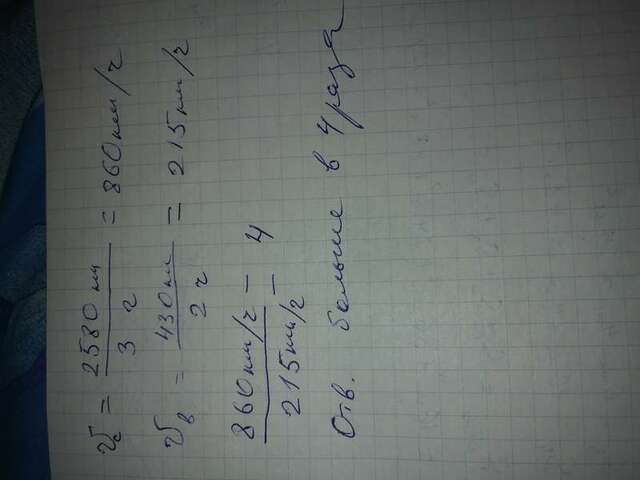 Vс = 2580 км / 3 ч = 860 км/ч
Vв = 430 км / 2 ч = 215 км/ч
860 км/ч / 215 км/ч = 4
Отв. больше в 4 раза